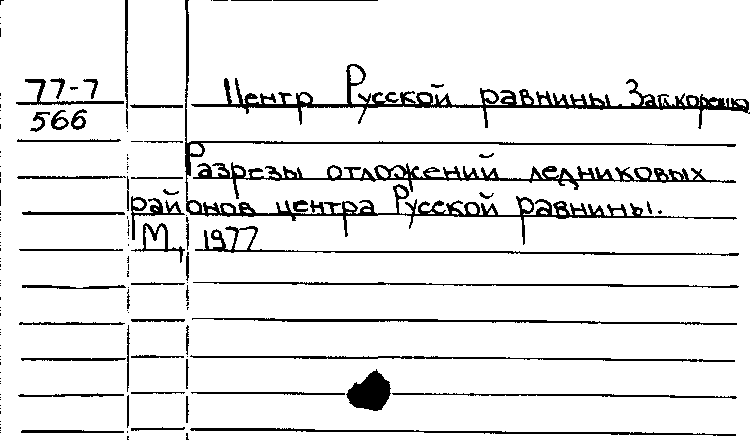 77-7 Центр Русской равнины. Зап. корешка
566
Разрезы отложений ледниковых
районов центра Русской равнины.
М., 1977